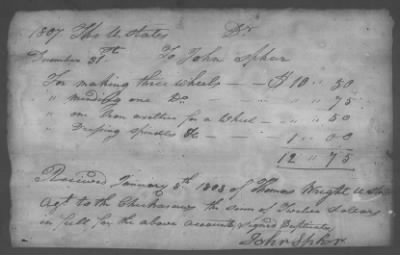 1807 The U States Dr
December 31st To John Spker
For making three wheels – – $ 10 " 50
" mending one Do – – " " 75
" one Iron axeltree for a Wheel – " " 50
" Dressing spindles &c – 1 " 00
12 " 75
Received January 5th 1808 of Thomas Wright U States
Agt to the Chickasaws the sum of Twelve Dollars
in full for the above account, signed Duplicates
John Spker